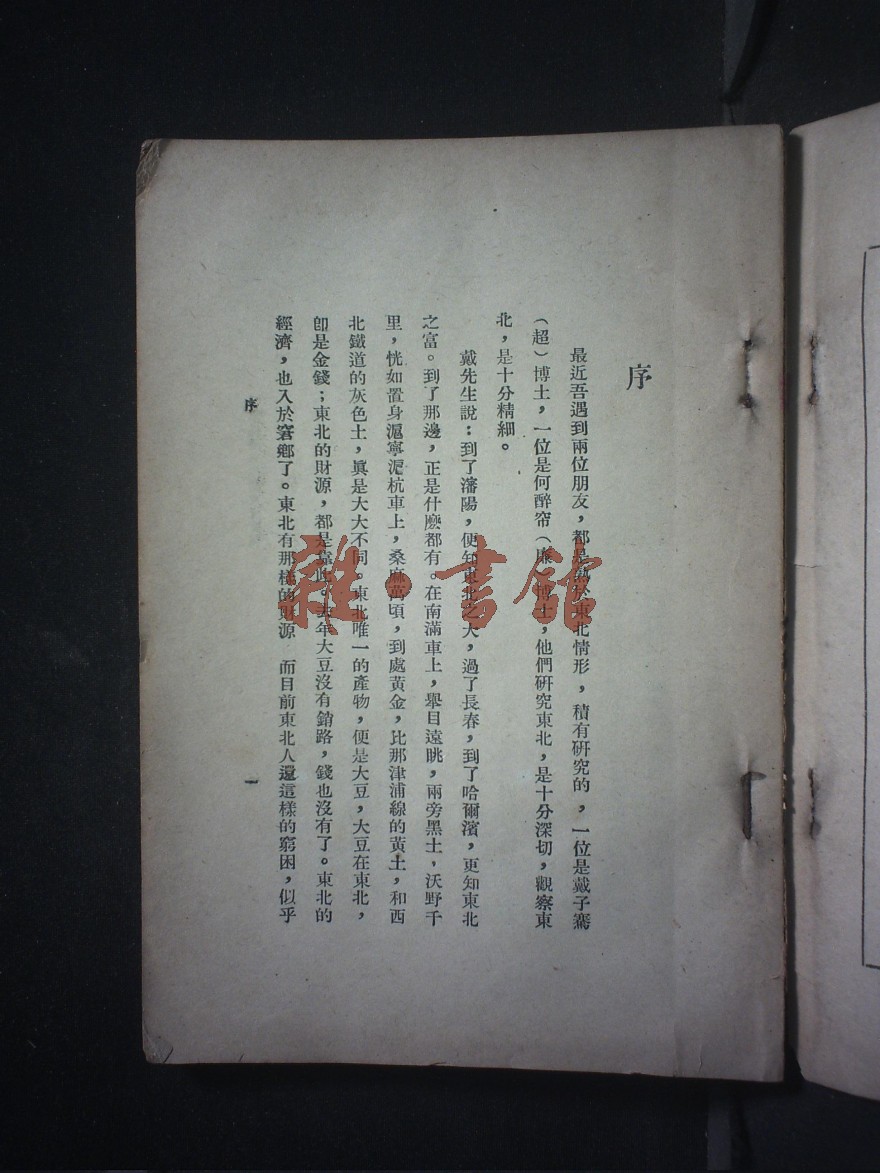 序
最近吾遇到兩位朋友，都是熟於東北情形，積有研究的，一位是戴子騫
（超）博士，一位是何醉帘（廉）博士，他們研究東北，是十分深切，觀察東
北，是十分精細。
戴先生說：到了瀋陽，便知東北之大，過了長春，到了哈爾濱，更知東北
之富。到了那邊，正是什麼都有。在南滿車上，舉目遠眺，兩旁黑土，沃野千
里，恍如置身滬寧滬杭車上，桑麻萬頃，到處黃金，比那津浦線的黃土，和西
北鐵道的灰色土，眞是大大不同。東北唯一的產物，便是大豆，大豆在東北，
卽是金錢；東北的財源，都是靠此。去年大豆沒有銷路，錢也沒有了。東北的
經濟，也入於窘鄉了。東北有那樣的財源　而目前東北人還這樣的窮困，似乎
序
一
雜·書館